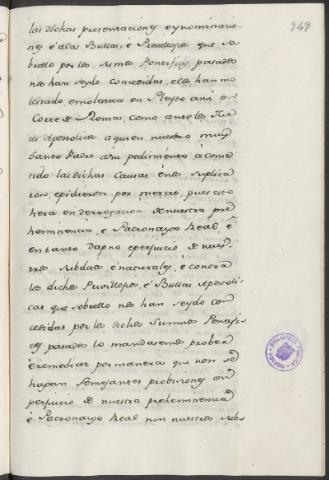 349
las dichas presentaciones e nominacio-
nes é a las Bullas, é Privillejos que so-
brello por los Sumos Pontifices pasados
nos han seydo concedidas, e les han mo
lestado, e molestan en Pleyto ansi en
Corte de Roma, como ante los Jue
ces Apostolicos a quien nuestro muy
Santo Padre a su pedimento á cometi
do las dichas Causas é nos suplica
ron, é pidieron por merced, pues esto
hera en derrogacion de nuestra pre
heminencia, é Patronazgo Real, é
en tanto dapno e perjuicio de nues-
tros subditos, é naturales, é contra
los dichos Privillejos, é Bullas Apostoli
cas que sobrello nos han seydo con
cedidas por los dichos Sumos Pontifi
ces pasados lo mandasemos prober
é remediar por manera que non se
hagan semejantes probisiones en
perjuicio de nuestra preheminencia
é Patronazgo Real nin nuestros subs